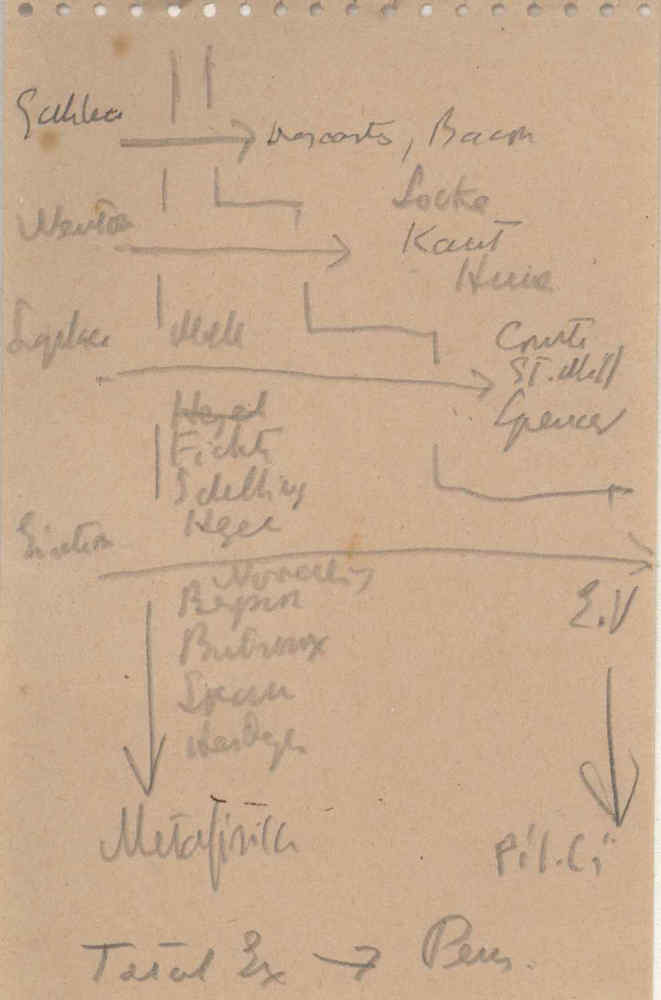 Galileo
Descartes, Bacon
Newton
Locke
Kant
Hume
Laplace
Comte
ST. Mill
Spencer
Hegel
Fichte
Schelling
Hegel
Einstein
Novalis
Bergson
Butroux
E.V
Heidegger
Metafisica
Fil. Ci
Total Ex → Pens.